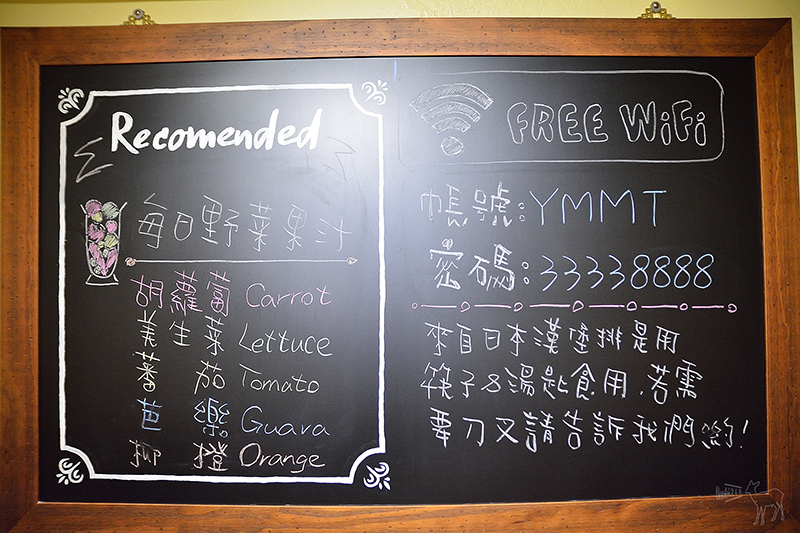 Recomended
每日野菜果汁
胡蘿蔔 Carrot
美生菜 Lettuce
蕃茄 Tomato
芭樂 Guava
柳橙 Orange
FREE WiFi
帳號:YMMT
密碼:33338888
來自日本漢堡排是用
筷子&湯匙食用,若需
要刀叉請告訴我們喲!